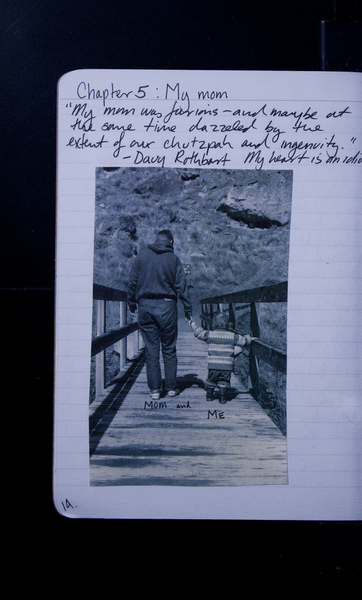 Chapter 5: My mom
"My mom was furious - and maybe at
the same time dazzled by the
extent of our chutzpah and ingenuity."
- Davy Rothbart My heart is an idio
MOM and
ME
14.